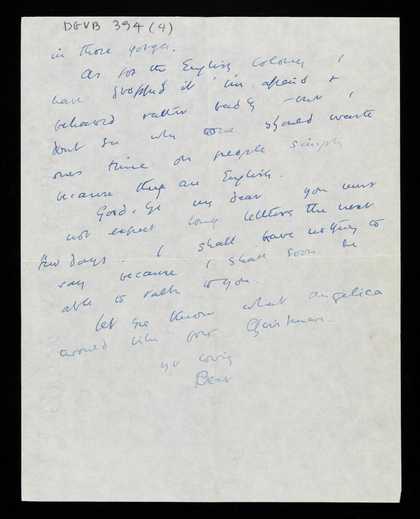 DGVB 394 (4)
in those gorges.
As for the English Colony I
have dropped it I'm afraid &
behaved rather badly – but I
dont see why one should waste
ones time on people simply
because they are English.
Good-bye my dear you must
not expect long letters the next
few days. I shall have nothing to
say because I shall soon be
able to talk to you.
Let me know what Angelica
would like for Christmas.
yr loving
Bear